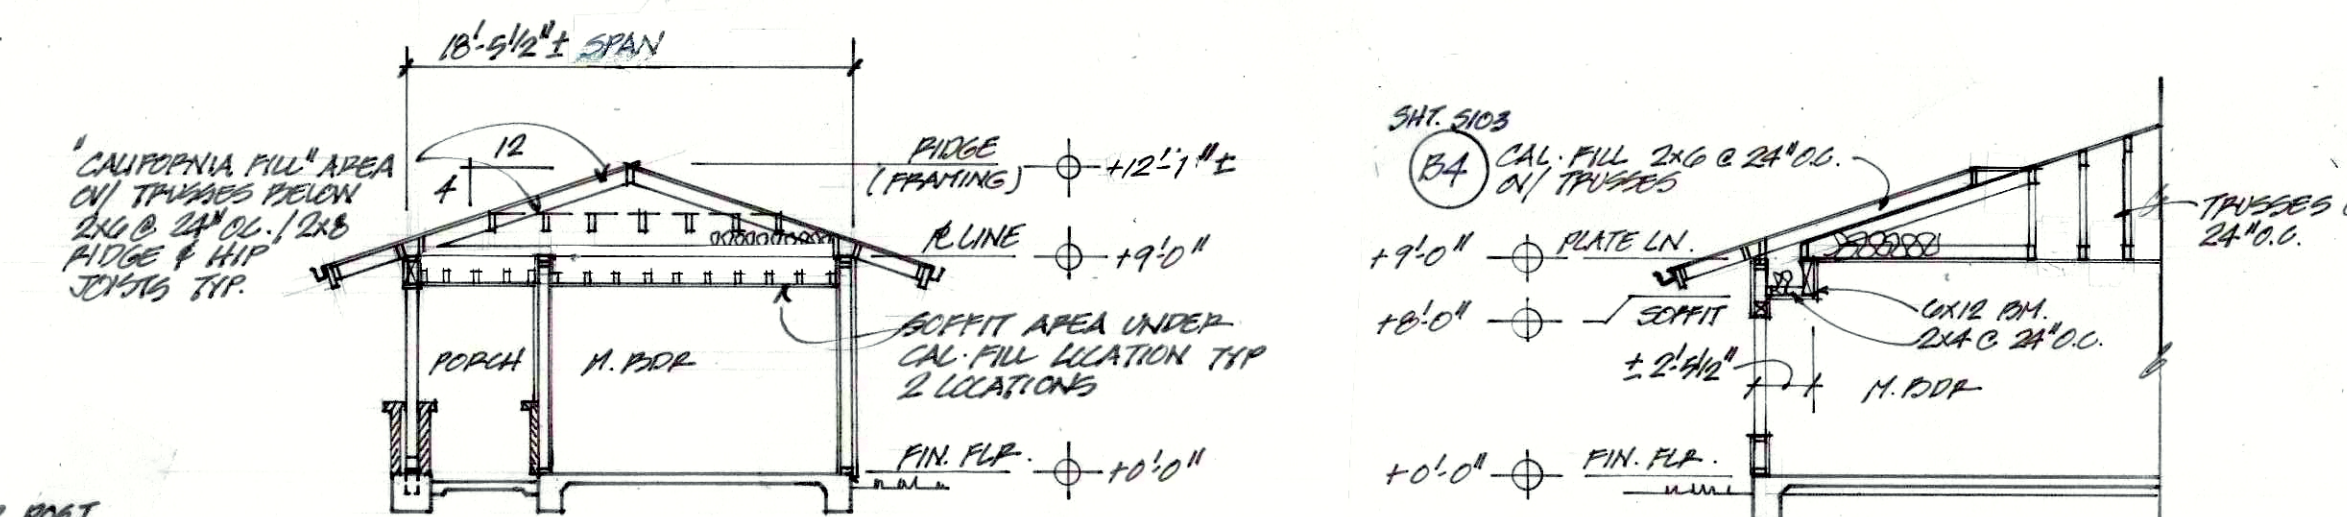 18'-5 1/2" ± SPAN
"CALIFORNIA FILL" AREA
OV/ TRUSSES BELOW
2x6 @ 24" O.C. / 2x8
RIDGE & HIP
JOISTS TYP.
12
4
RIDGE
(FRAMING)
+12'-1" ±
℄ LINE
+9'-0"
SOFFIT AREA UNDER
CAL. FILL LOCATION TYP
2 LOCATIONS
PORCH
M. BDR
FIN. FLR.
+0'-0"
POST
SHT. S103
B4
CAL. FILL 2x6 @ 24" O.C.
OV/ TRUSSES
TRUSSES
24" O.C.
+9'-0"
PLATE LN.
+8'-0"
SOFFIT
6x12 BM.
2x4 @ 24" O.C.
± 2'-5 1/2"
M. BDR
+0'-0"
FIN. FLR.